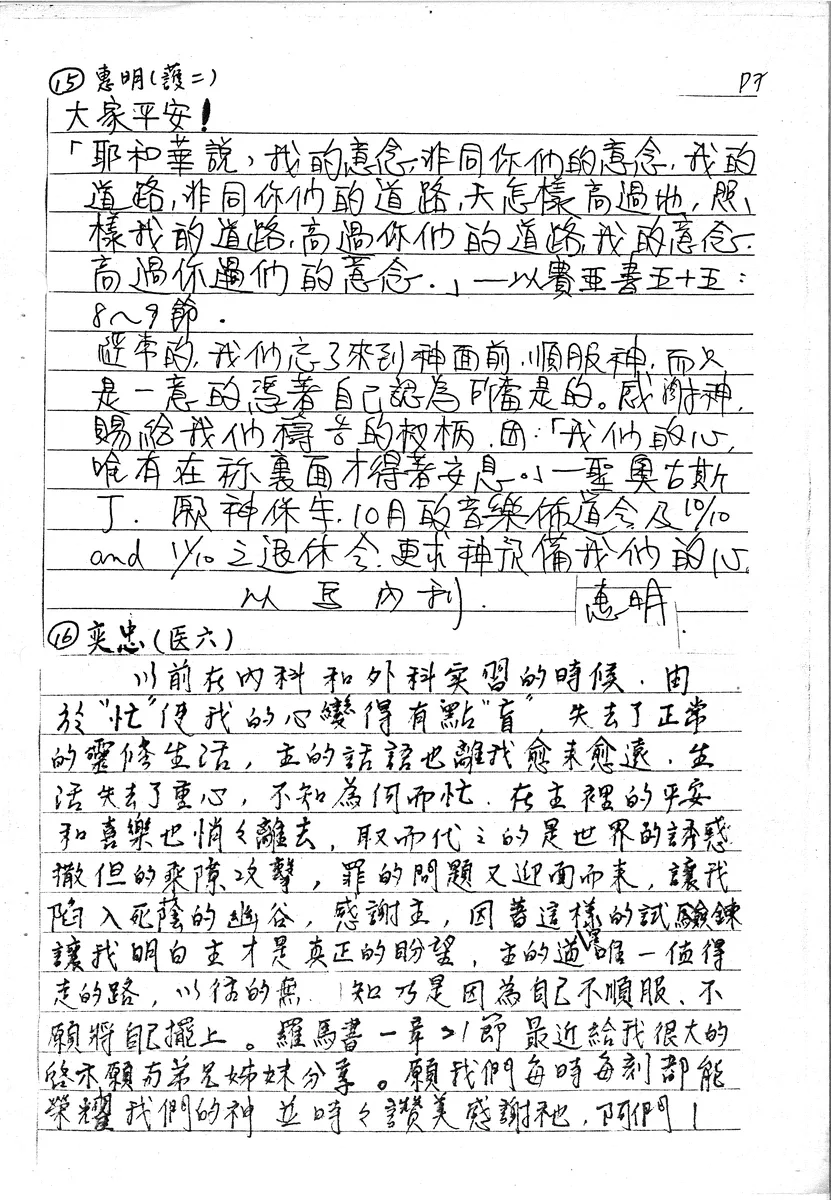 ⑮ 惠明(護二)
P7
大家平安!
「耶和華說,我的意念,非同你們的意念,我的
道路,非同你們的道路,天怎樣高過地,照
樣我的道路,高過你們的道路,我的意念.
高過你過們的意念.」—以賽亞書五十五:
8~9節.
經常的,我們忘了來到神面前,順服神,而只
是一意的憑著自己認為所當是的。感謝神,
賜給我們禱告的權柄.因:「我們的心,
唯有在祢裏面才得著安息。」—聖奧古斯
丁. 願神保守,10月的音樂佈道會及10/10
and 11/10之退休會.更求神預備我們的心.
以馬內利. 惠明
⑯ 奕忠(医六)
以前在內科和外科实習的時候.由
於"忙"使我的心變得有點"盲",失去了正常
的靈修生活,主的話語也離我愈来愈遠.生
活失去了重心,不知為何而忙.在主裡的平安
和喜樂也悄々離去,取而代之的是世界的誘惑
撒但的乘隙攻擊,罪的問題又迎面而来,讓我
陷入死蔭的幽谷,感謝主,因著這樣的試驗鍊
讓我明白主才是真正的盼望,主的道是唯一值得
走的路,以往的無 知乃是因為自己不順服、不
願將自己擺上。羅馬書一章21節最近給我很大的
啓示願与弟兄姊妹分享。願我們每時每刻都能
榮耀我們的神並時々讚美感謝祂,阿們!